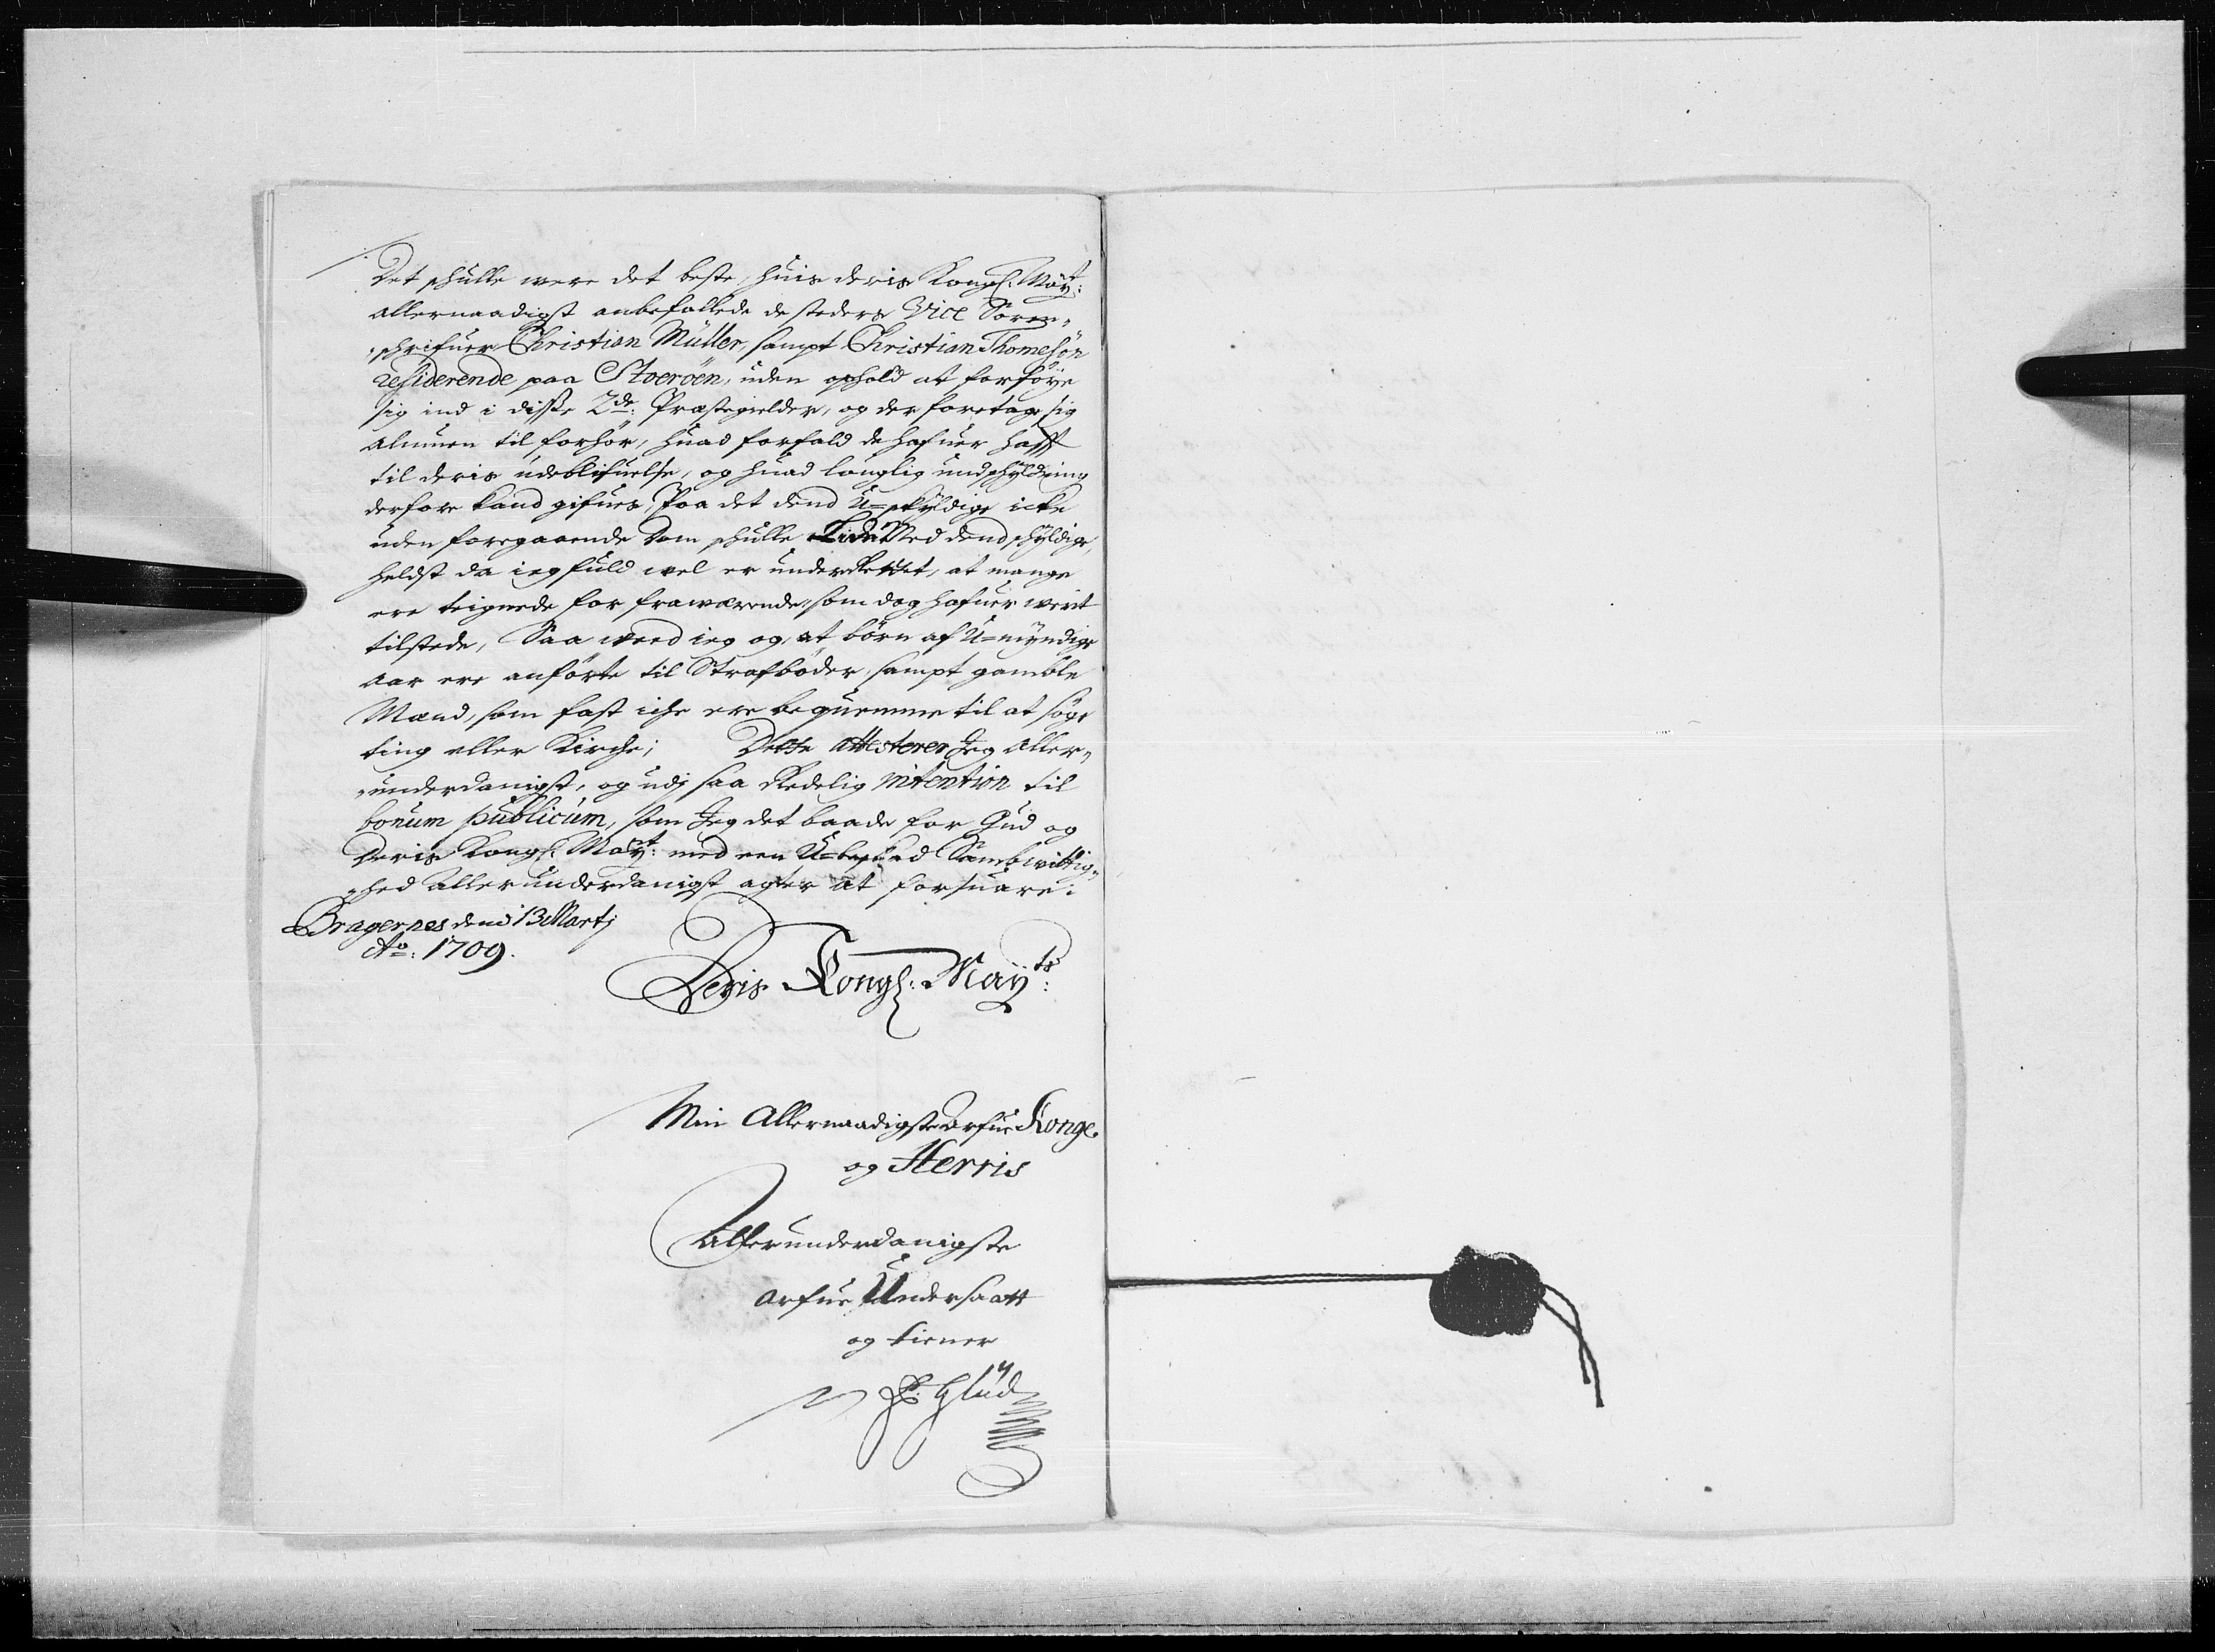 Det schulle were det beste, huis deris Kongl: Maÿt:
allernaadigst anbefallede de steders Vice Soren„
„schrifuer Christian Müller, sampt Christian Thomesøn
residerende paa Stoerøen, uden ophold at forføye
sig ind i disse 2de: Præstegielder, og der foretage sig
almuen til forhør, huad forfald de hafuer hafft
til deris udeblifuelse, og huad louglig undschyldning
derfore kand gifues, Paa det dend U=schyldige icke
uden foregaaende Dom schulle Lide Med dend schyldige,
heldst da ieg fuld vel er underrettet, at mange
ere teignede for fraværende, som dog hafuer verit
tilstede, Saa veed ieg og, at børn af U=myndige
aar ere anførte til Strafbøder, sampt gamble
Mænd, som fast iche ere beqvemme til at søge
ting eller Kirche; Dette attesterer Jeg Aller„
„underdanigst, og udj saa Redelig intention til
bonum publicum, som Jeg det baade for Gud og
Deris Kongl: Maÿt: med een U=besked Samvittig„
„hed allerunderdanigst agter at forsuare:
Bragernes dend 13 Martj
Ao: 1709.
Deris Kongl: Maÿts:
Min Allernaadigste Arfue Konge
og Herris
Allerunderdanigste
Arfue Undersaatt
og tiener
P: Glud